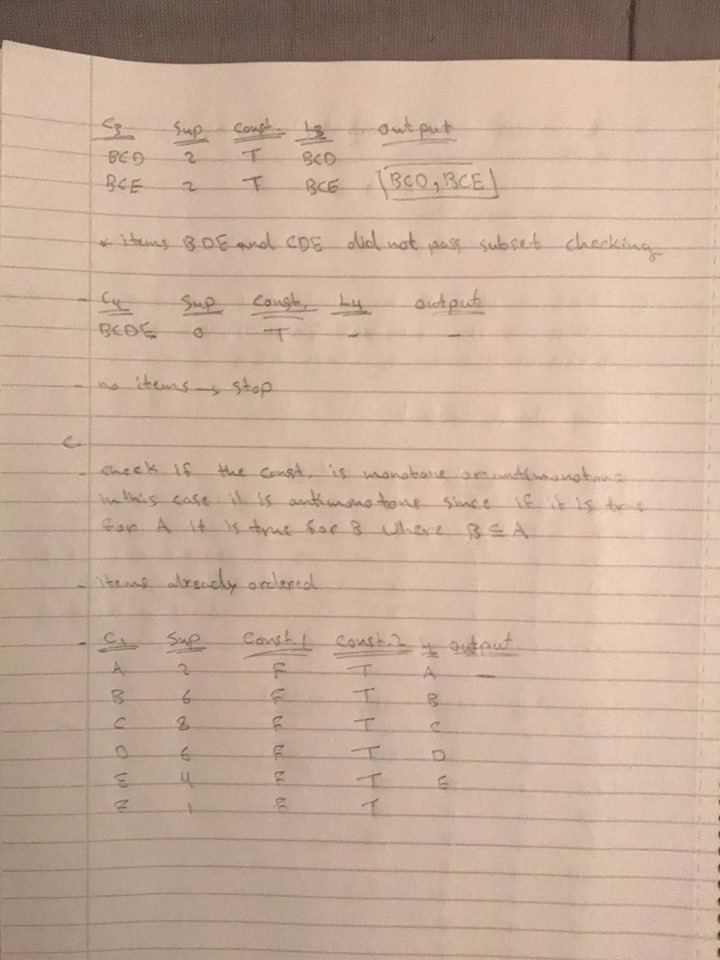 C3 Sup Const. L3 output
BCD 2 T BCD
BCE 2 T BCE {BCD, BCE}
* items BDE and CDE did not pass subset checking
- C4 Sup Const. L4 output
BCDE 0 T - -
- no items → stop
C
- check if the const. is monotone or antimonotone
in this case it is antimonotone since if it is true
for A it is true for B where B ⊆ A
- items already ordered
- C1 Sup Const.1 Const.2 output
A 2 F T A -
B 6 F T B
C 8 F T C
D 6 F T D
E 4 F T E
F 1 F T